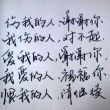 伤我的人，谢谢你。
我伤的人，对不起。
爱我的人，谢谢你。
我爱的人，祝福你。
恨我的人，请继续